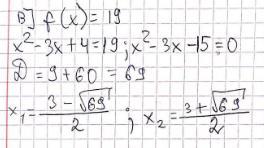 в] f(x)=19
x²-3x+4=19; x²-3x-15=0
D=9+60=69
x₁=(3-√69)/2 ; x₂=(3+√69)/2